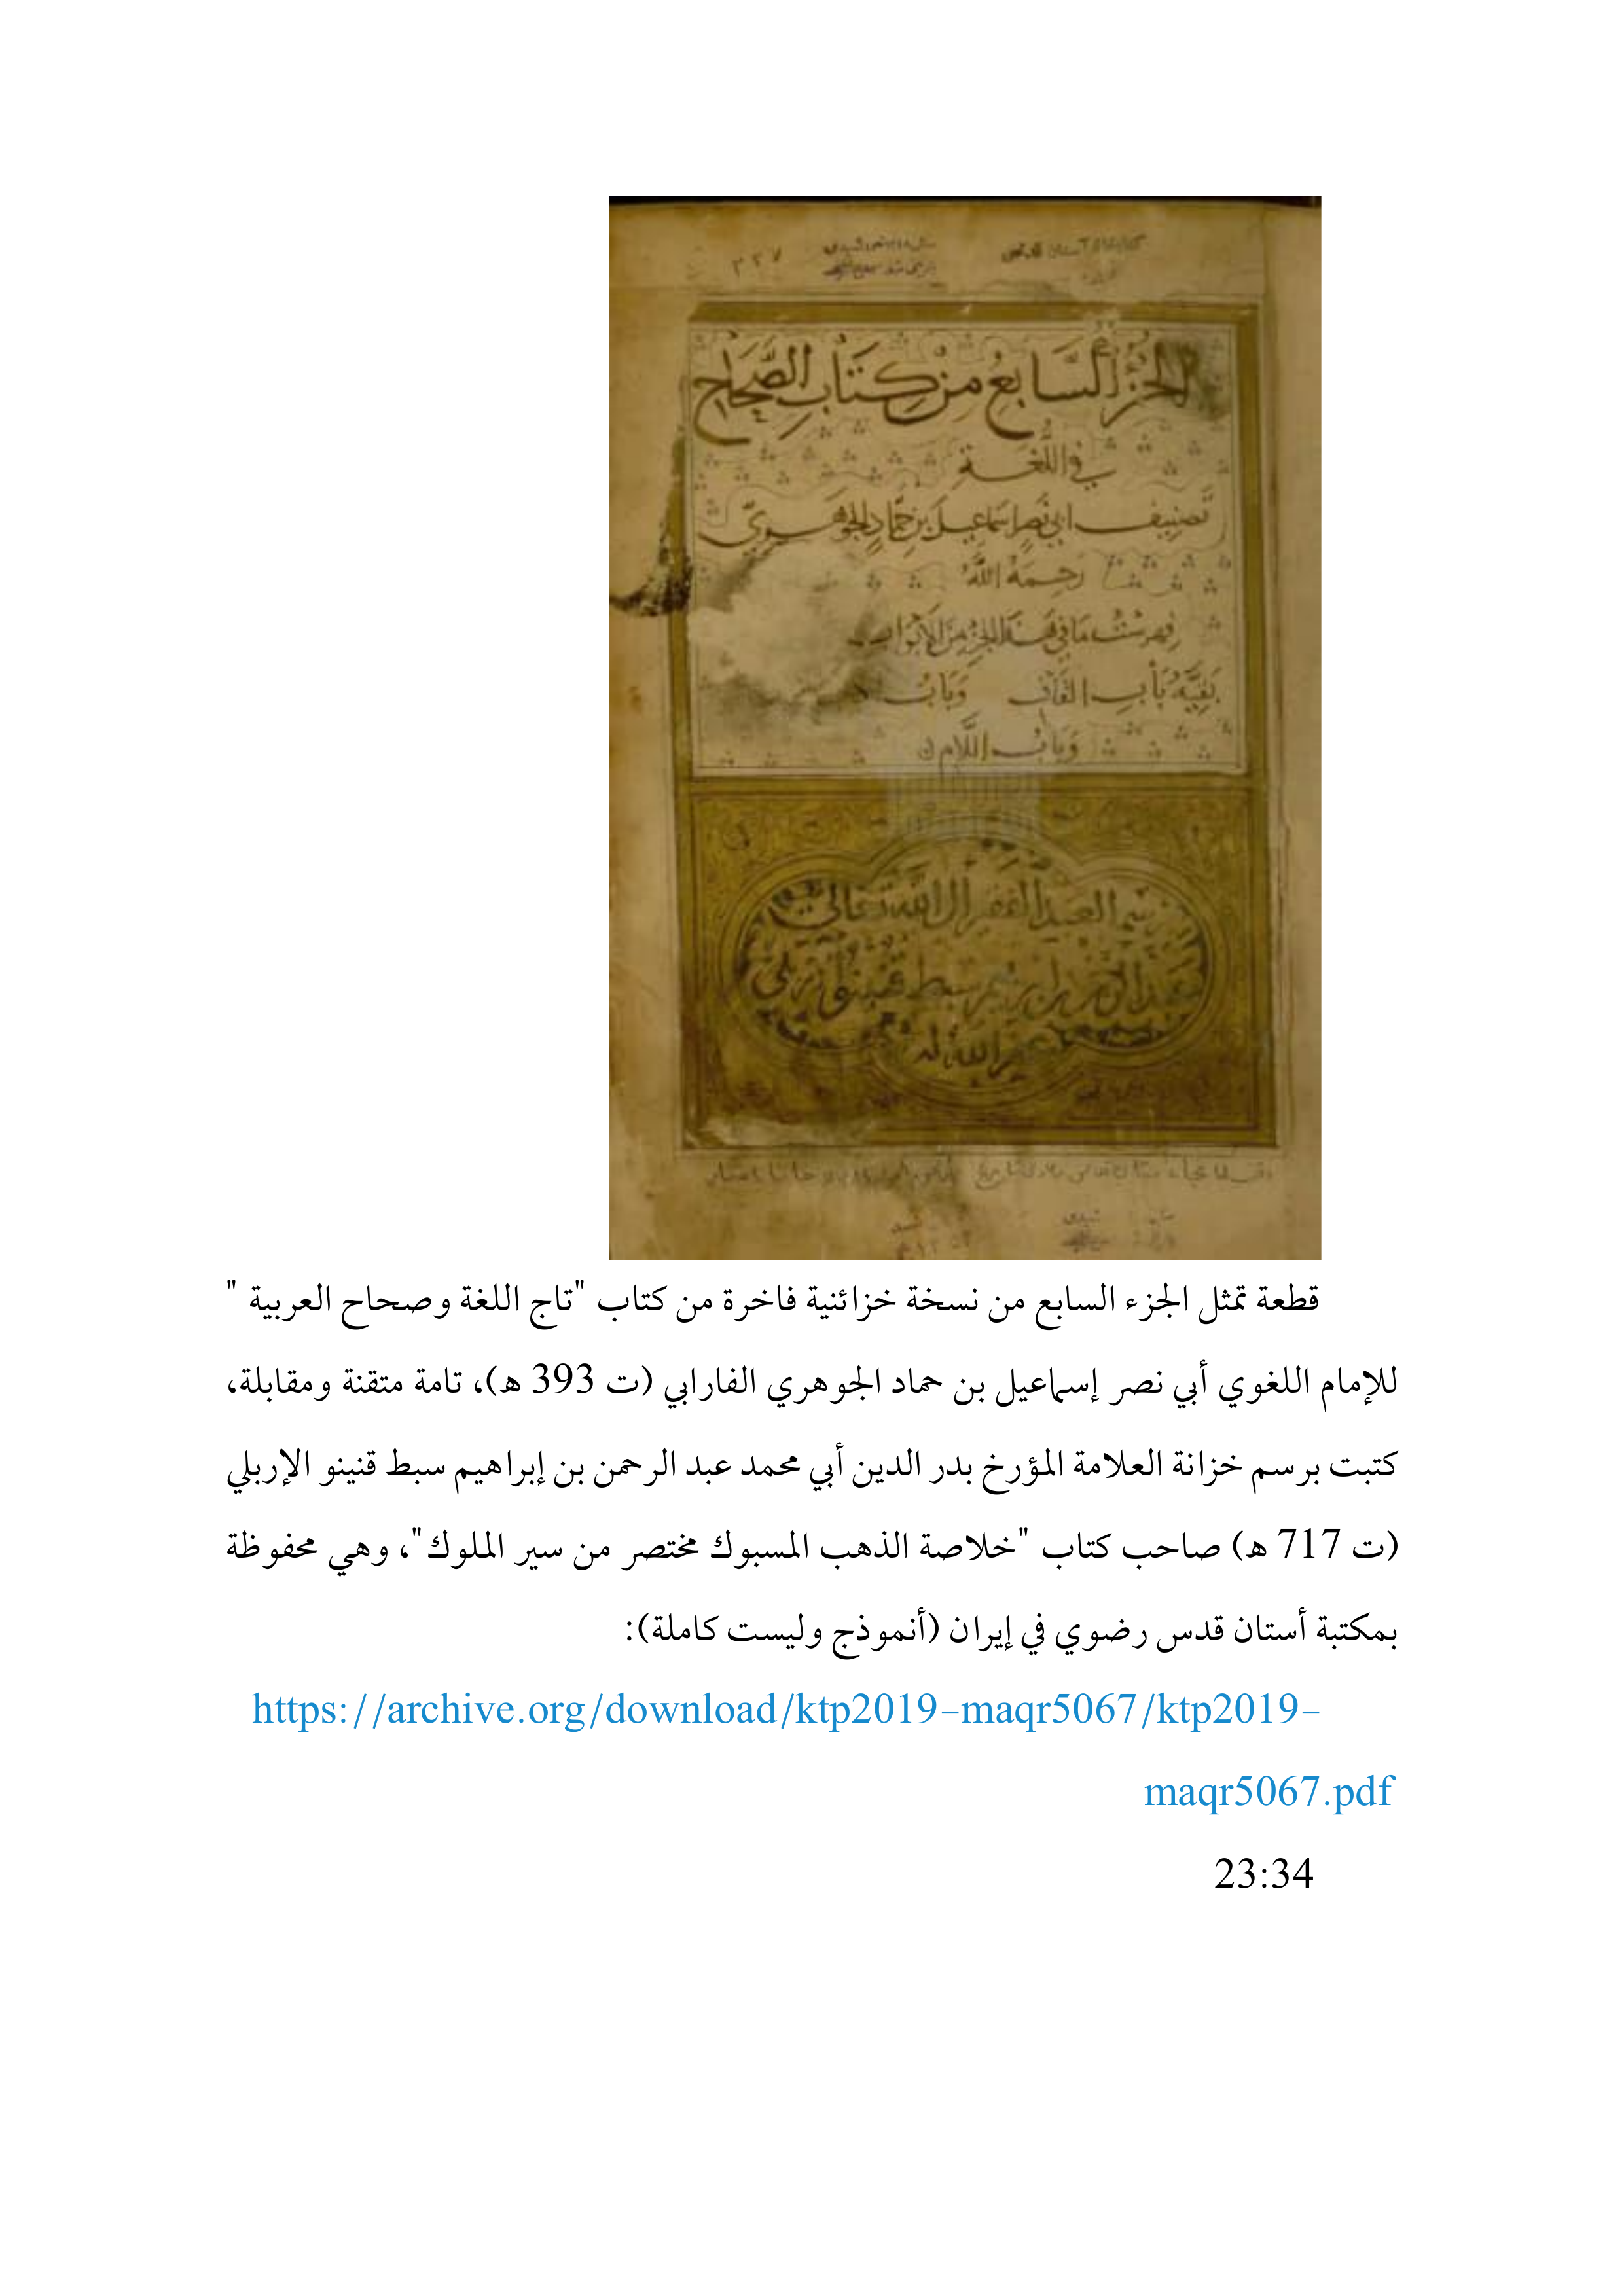 الجزء السابع من كتاب الصحاح
في اللغة
تصنيف ابي نصر اسماعيل بن حماد الجوهري
رحمه الله
فهرست ما في هذا الجزء من الابواب
بقية باب القاف وباب
وباب اللام
برسم العبد الفقير الى الله تعالى
عبد الرحمن بن ابرهيم سبط قنينو الاربلي
غفر الله له
قطعة تمثل الجزء السابع من نسخة خزائنية فاخرة من كتاب "تاج اللغة وصحاح العربية "
للإمام اللغوي أبي نصر إسماعيل بن حماد الجوهري الفارابي (ت 393 هـ)، تامة متقنة ومقابلة،
كتبت برسم خزانة العلامة المؤرخ بدر الدين أبي محمد عبد الرحمن بن إبراهيم سبط قنينو الإربلي
(ت 717 هـ) صاحب كتاب "خلاصة الذهب المسبوك مختصر من سير الملوك"، وهي محفوظة
بمكتبة أستان قدس رضوي في إيران (أنموذج وليست كاملة):
https://archive.org/download/ktp2019-maqr5067/ktp2019-
maqr5067.pdf
23:34